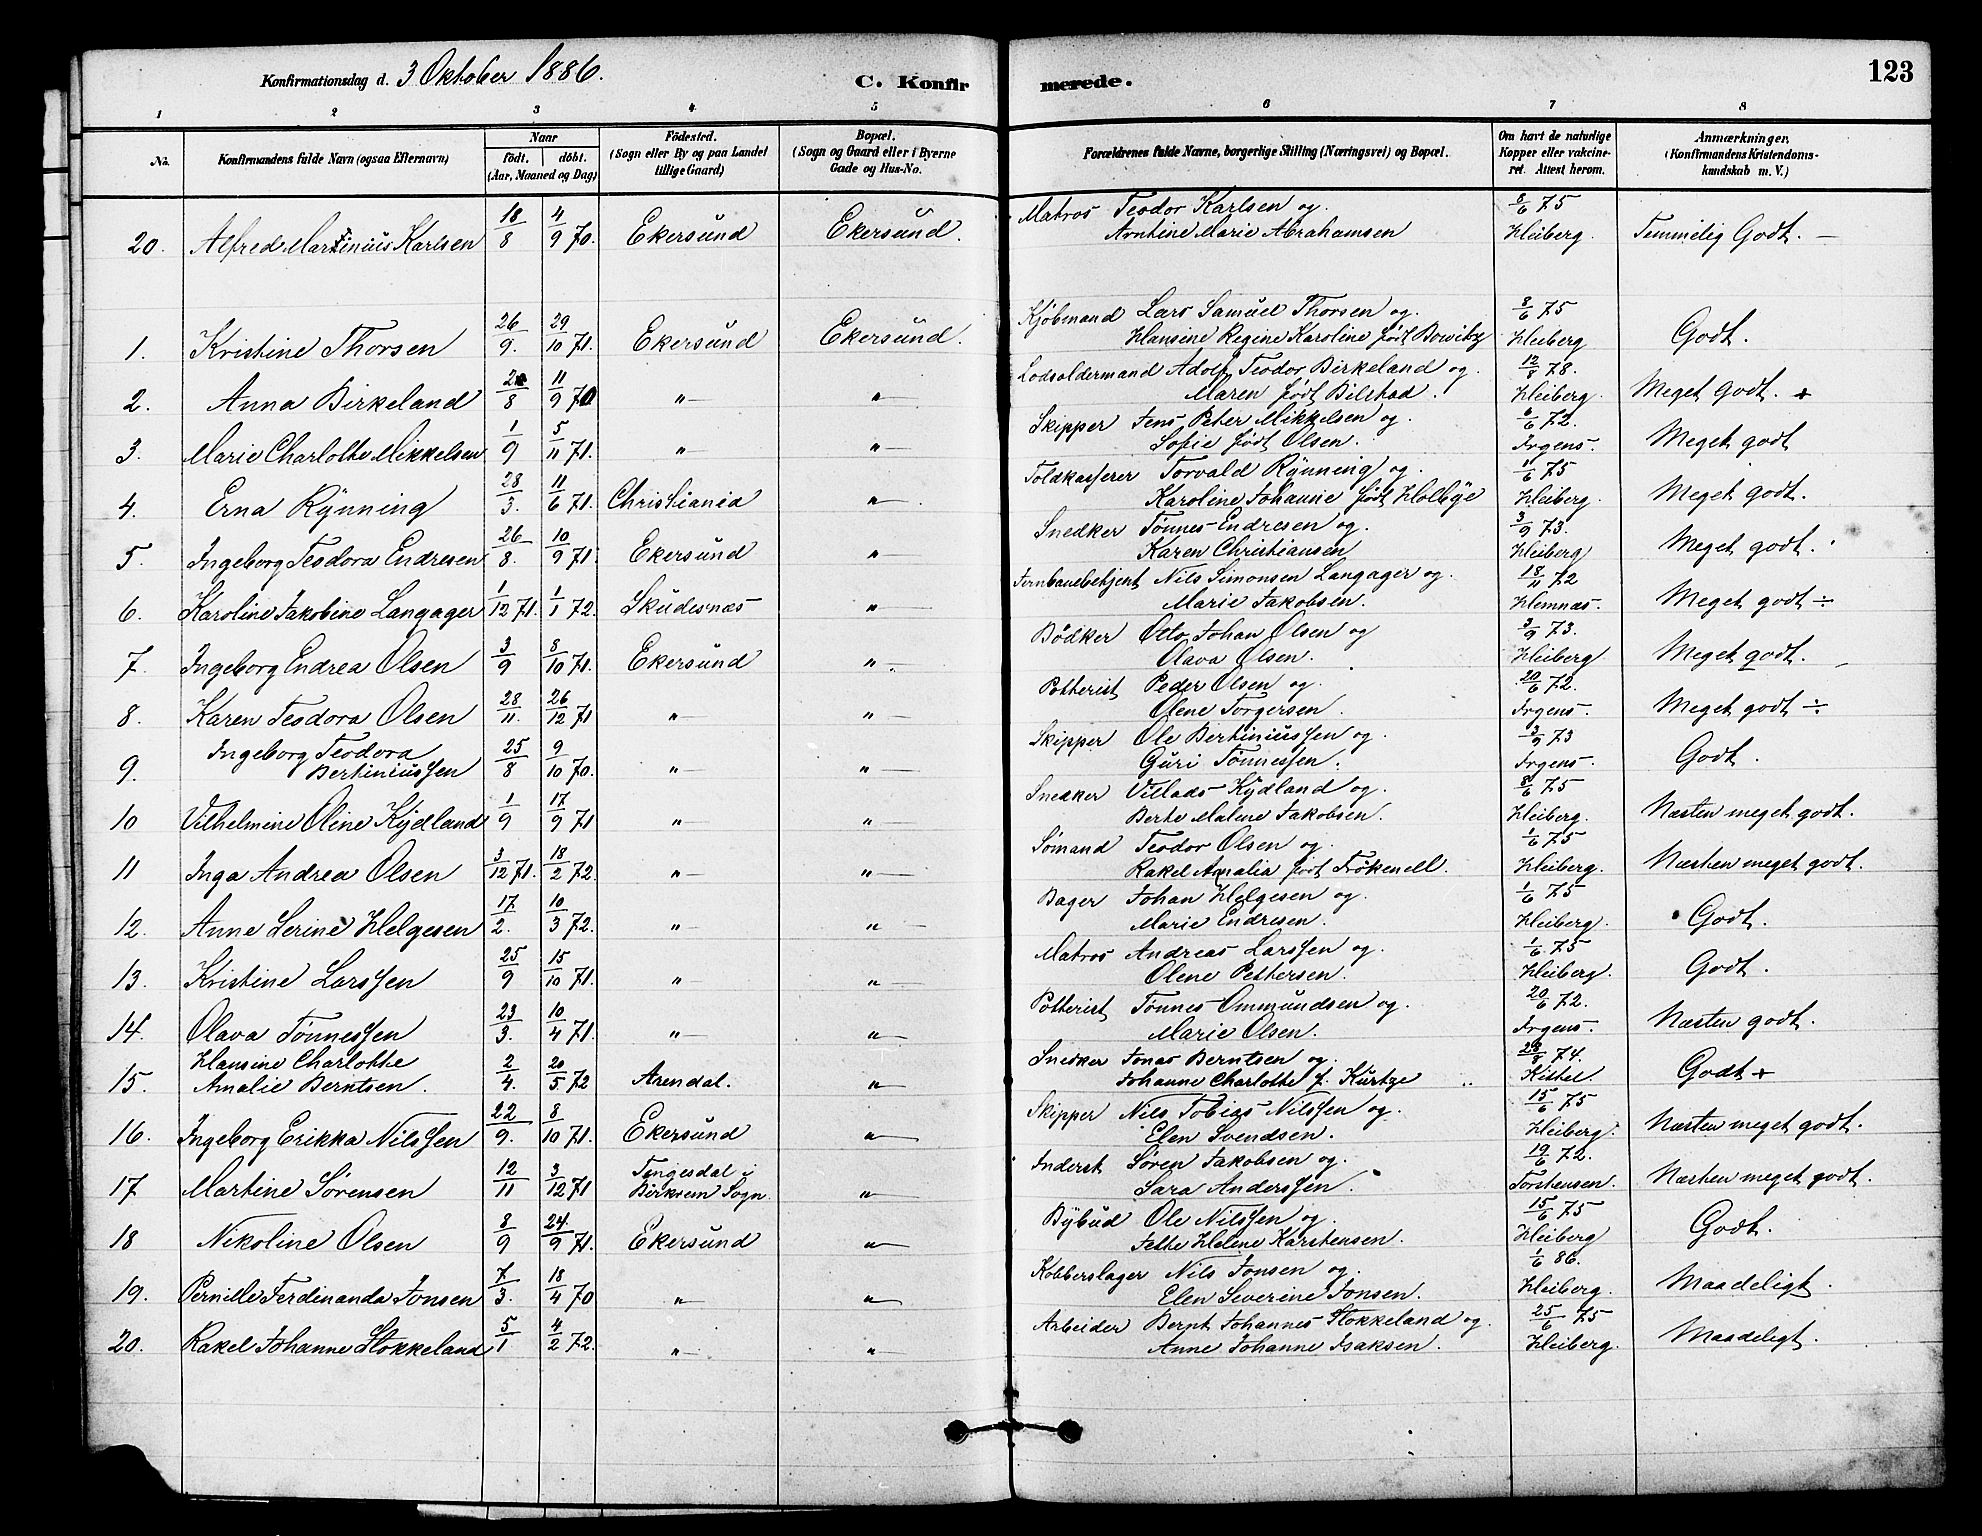 Konfirmationsdag d. 3 Oktober 1886.
C. Konfirmerede.
123
1 2 3 4 5 6 7 8
No. Konfirmandens fulde Navn (ogsaa Efternavn) Naar født. døbt. (Aar, Maaned og Dag) Fødested. (Sogn eller By og paa Landet tillige Gaard) Bopæl. (Sogn og Gaard eller i Byerne Gade og Hus-No. Forældrenes fulde Navne, borgerlige Stilling (Næringsvei) og Bopæl. Om havt de naturlige Kopper eller vakcineret. Attest herom. Anmærkninger. (Konfirmandens Kristendomskundskab m. V.)
20. Alfred Martinius Karlsen 18/8 4/9 70. Ekersund Ekersund. Matros Teodor Karlsen og Arntine Marie Abrahamsen 8/6 75 Heiberg. Temmelig Godt. —
1. Kristine Thorsen 26/9. 29/10 71. Ekersund Ekersund. Kjøbmand Lars Samuel Thorsen og Hansine Regine Karoline født 8/6 75 Heiberg Godt.
2. Anna Birkeland 8 11/9 70 " " Lodsoldermand Adolf Teodor Birkeland og Maren født Bilstad. 12/8 78. Heiberg. Meget Godt. +
3. Marie Charlotte Mikkelsen 1/9 5/11 71. " " Skipper Jens Peter Mikkelsen og Sofie født Olsen. 6/6 72. Irgens. Meget godt
4. Erna Rynning 28/3. 11/6 71. Christiania " Toldkasserer Torvald Rynning og Karoline Johanne født Holbye 1/6 75 Heiberg. Meget godt.
5. Ingeborg Teodora Endresen 26/8. 10/9 71. Ekersund " Snedker Tønnes Endresen og Karen Christiansen 3/9 73. Heiberg Meget godt.
6. Karoline Jakobine Langager 1/12 71. 1/1 72. Skudesnæs " Jernbanebetjent Nils Simonsen Langager og Marie Jakobsen. 18/11 72 Hemnæs. Meget godt ÷
7. Ingeborg Endrea Olsen 3/9 8/10 71. Ekersund " Bødker Otto Johan Olsen og Olava Olsen. 3/9 73. Heiberg Meget godt.
8. Karen Teodora Olsen 28/11. 26/12 71 " " Potterist Peder Olsen og Olene Torgersen. 20/6 72. Irgens. Meget godt ÷
9. Ingeborg Teodora Bertiniussen 25/8 9/10 70. " " Skipper Ole Bertiniussen og Guri Tønnessen. 3/9 73 Irgens. Godt.
10 Vilhelmine Oline Kydland 1/9 17/9 71 " " Snedker Villads Kydland og Berte Malene Jakobsen. 8/6 75 Heiberg. Næsten meget godt.
11 Inga Andrea Olsen 3/12 71. 18/2 72. " " Sømand Teodor Olsen og Rakel Amalia født Trøkenell. 1/6 75 Heiberg. Næsten meget godt.
12. Anne Serine Helgesen 17/2. 10/3 72. " " Bager Johan Helgesen og Marie Endresen. 1/6 75 Heiberg. Godt.
13. Kristine Larssen 25/9 15/10 71. " " Matros Andreas Larssen og Olene Pettersen. 1/6 75 Heiberg. Godt.
14. Olava Tønnessen 23/3. 10/4 71. " " Potterist Tønnes Ommundsen og Marie Olsen. 20/6 72. Irgens. Næsten godt.
15. Hansine Charlotte Amalie Berntsen. 2/4. 20/5 72 Arendal. " Snedker Jonas Berntsen og Johanne Charlotte f. Kurtze 28/8 74. Kittel. Godt +
16. Ingeborg Erikka Nilssen 22/9. 8/10 71. Ekersund " Skipper Nils Tobias Nilssen og Elen Svendsen. 15/6 75 Heiberg. Næsten meget godt.
17 Martine Sørensen 12/11 3/12 71 Tengesdal i Birkrem Sogn. " Inderst Søren Jakobsen og Sara Anderssen. 19/6 72. Torstensen. Næsten meget godt.
18 Nikoline Olsen 8/9 24./9 71. Ekersund " Bybud Ole Nilssen og Jette Helene Karstensen. 15/6 75 Heiberg Godt.
19. Pernille Ferdinanda Jonsen 7/3. 18/4 70 " " Kobberslager Nils Jonsen og Elen Severine Jonsen. 1/6 86. Heiberg. Maadeligt.
20. Rakel Johanne Stokkeland 5/1 4/2 72. " " Arbeider Bernt Johannes Stokkeland og Anne Johanne Isaksen. 25/6 75 Heiberg. Maadeligt.